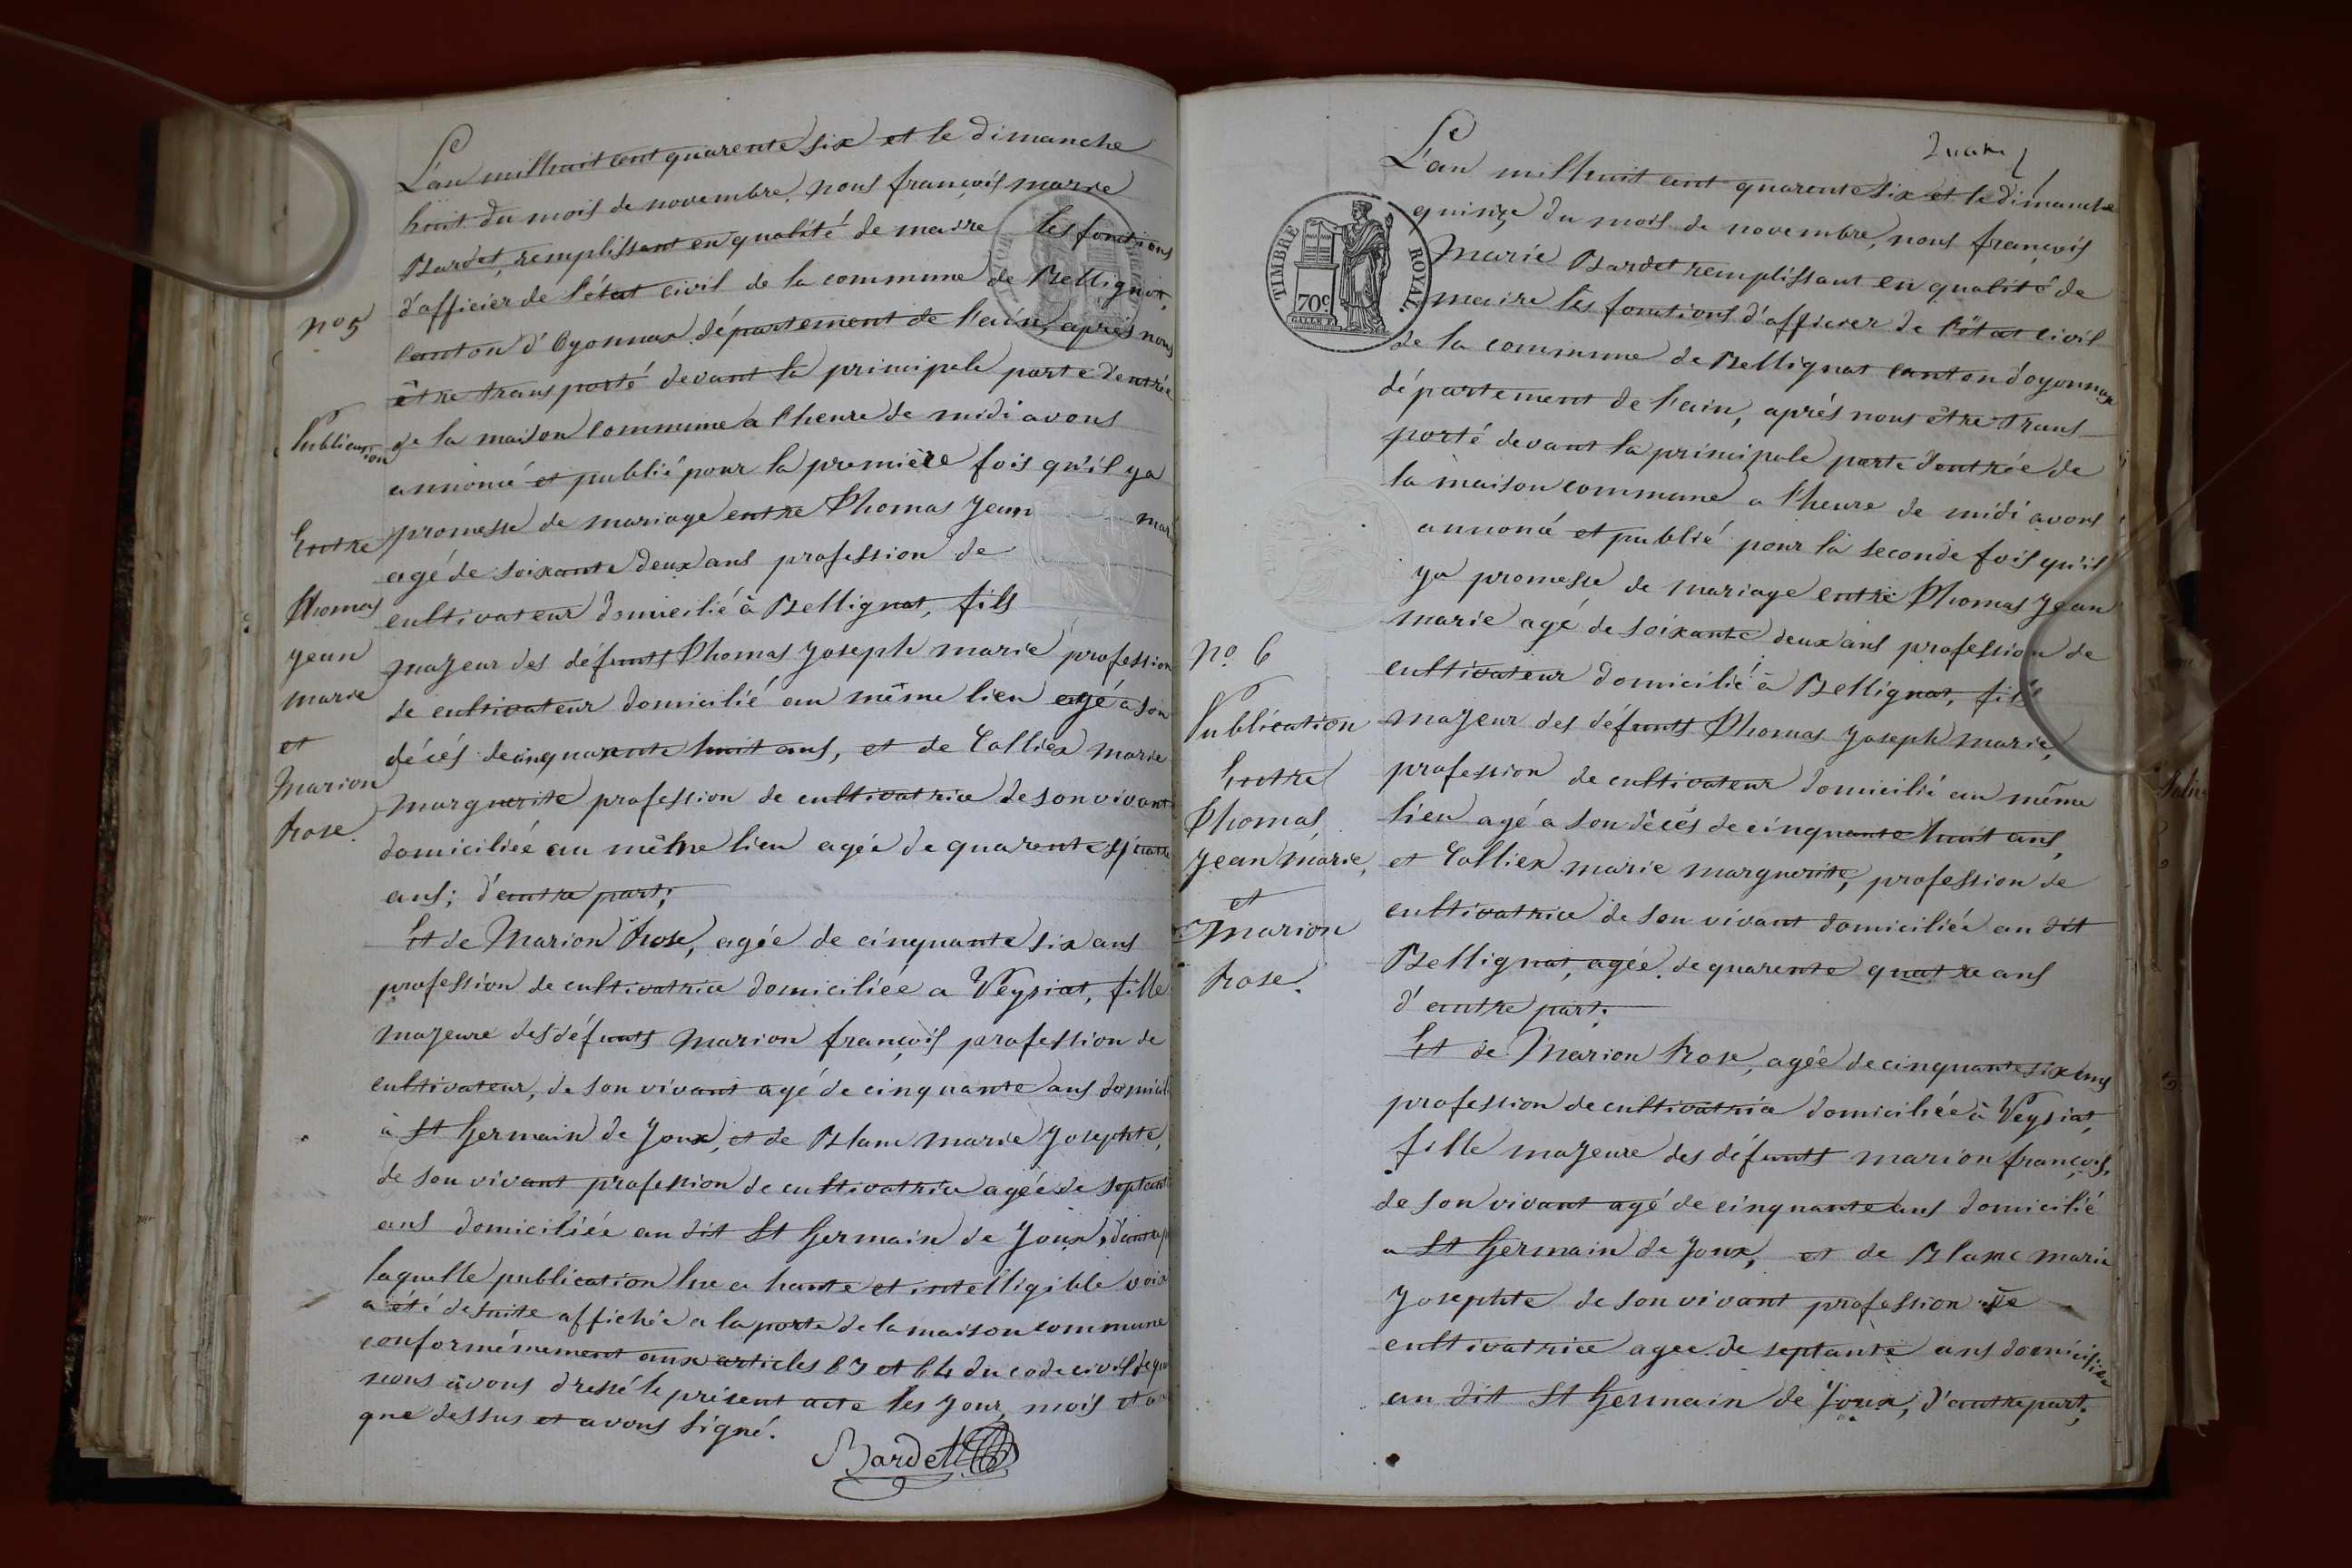 L'an mil huit cent quarente six et le dimanche
huit du mois de novembre, nous françois marie
Bardet, remplissant en qualité de maire les fonctions
d'afficier de l'état civil de la commune de Bellignat,
no 5
canton d'Oyonnax département de l'ain, après nous
être transporté devant la principale porte d'entrée
Publication
de la maison commune a l'heure de midi avons
annoncé et publié pour la première fois qu'il ya
Entre
promesse de mariage entre Thomas Jean mari
agé de soixante deux ans profession de
Thomas
cultivateur domicilié à Bellignat, fils
jean
majeur des défunts Thomas Joseph marie profession
marie
de cultivateur domicilié au même lieu agé a son
et
décés de cinquarente huit ans, et de Collier marie
Marion
marguerite profession de cultivatrice de son vivant
Rose.
domiciliée au même lieu agée de quarente
ans; d'autre part;
Et de Marion Rose, agée de cinquante six ans
profession de cultivatrice domiciliée a Veyziat, fille
majeure des défunts Marion françois profession de
cultivateur, de son vivant agé de cinquante ans domicil
à St Germain de Joux, et de Blanc marie Josephte,
de son vivant profession de cultivatrice agée de septante
ans domiciliée au dit St Germain de Joux,
laquelle publication lue a haute et intelligible voix
a été de suite affichée a la porte de la maison commune
conformémement aux articles 63 et 64 du code civil de quoi
nous avons dressé le présent acte les jour, mois et an
que dessus et avons signé.
Bardet
L'an mil huit cent quarente six et le dimanche
quinze du mois de novembre, nous françois
Marie Bardet remplissant en qualité de
maire les fonctions d'afficier de l'état civil
de la commune de Bellignat canton d'oyonnax
département de l'ain, aprés nous être trans-
porté devant la principale porte d'entrée de
la maison commune a l'heure de midi avons
annoncé et publié pour la seconde fois qu'il
ya promesse de mariage entre Thomas Jean
marie agé de soixante deux ans profession de
no. 6
cultivateur domicilié à Bellignat, fils
Publication
majeur des défunts Thomas Joseph marie,
Entre
profession de cultivateur domicilié au même
Thomas,
lieu agé a son décés de cinquante huit ans,
Jean marie,
et Collier marie marguerite, profession de
et
cultivatrice de son vivant domiciliée au dit
Marion
Bellignat, agée de quarente quatre ans
Rose.
d'autre part;
Et de Marion Rose, agée de cinquante six ans
profession de cultivatrice domiciliée à Veyziat,
fille majeure des défunts marion françois,
de son vivant agé de cinquante ans domicilié
a St Germain de Joux, et de Blanc marie
Josephte de son vivant profession de
cultivatrice agee de septante ans domiciliée
au dit St Germain de Joux, d'autre part;
TIMBRE ROYAL.
70c.